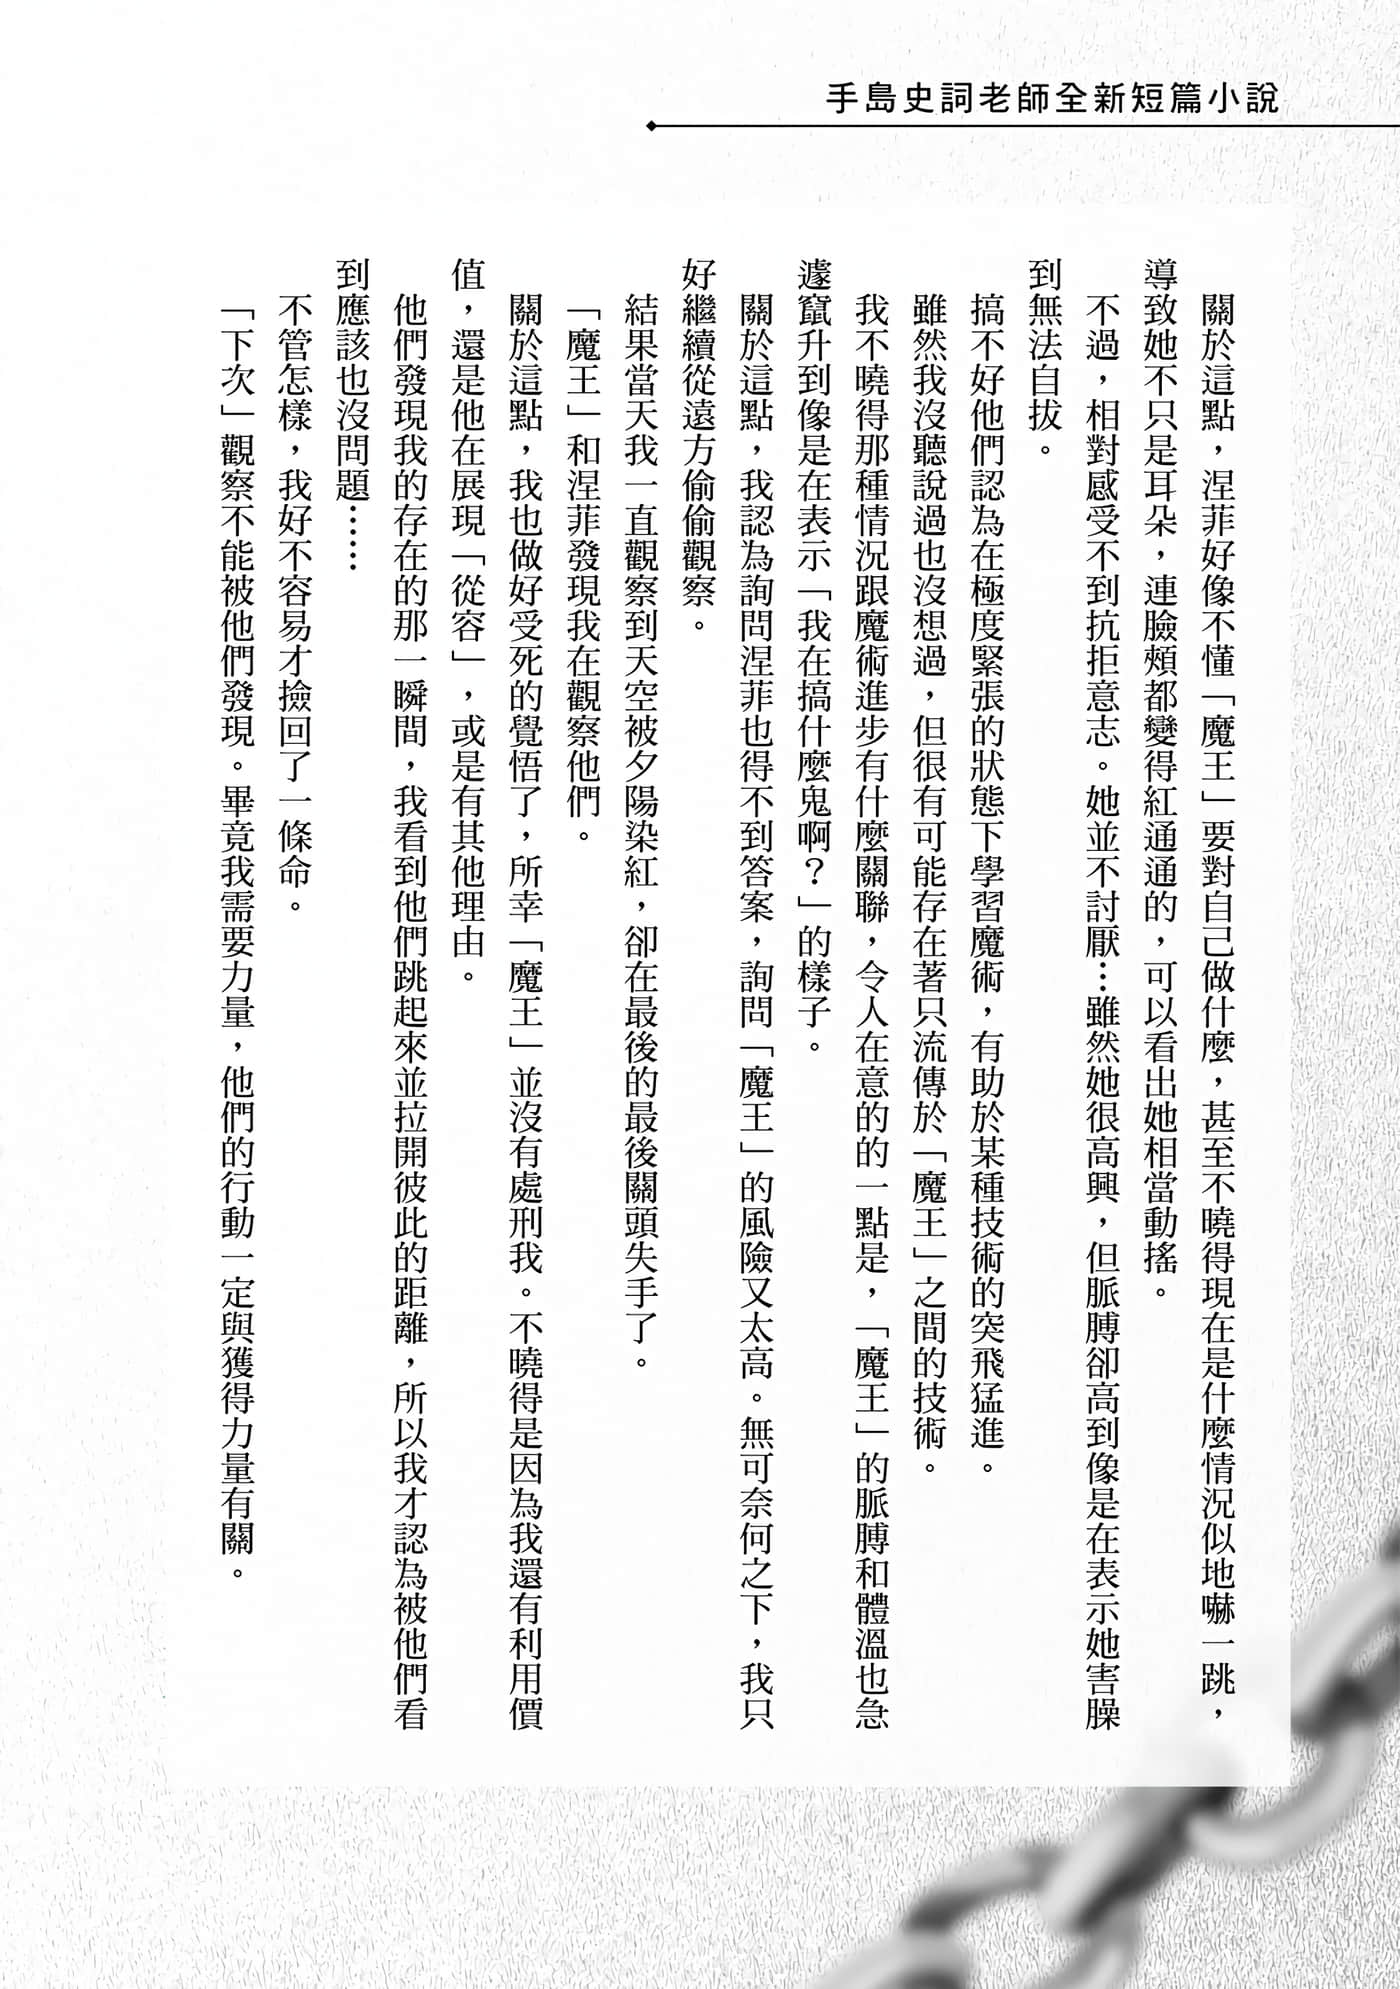 手島史詞老師全新短篇小說
關於這點，涅菲好像不懂「魔王」要對自己做什麼，甚至不曉得現在是什麼情況似地嚇一跳，
導致她不只是耳朵，連臉頰都變得紅通通的，可以看出她相當動搖。
不過，相對感受不到抗拒意志。她並不討厭…雖然她很高興，但脈膊卻高到像是在表示她害臊
到無法自拔。
搞不好他們認為在極度緊張的狀態下學習魔術，有助於某種技術的突飛猛進。
雖然我沒聽說過也沒想過，但很有可能存在著只流傳於「魔王」之間的技術。
我不曉得那種情況跟魔術進步有什麼關聯，令人在意的的一點是，「魔王」的脈膊和體溫也急
遽竄升到像是在表示「我在搞什麼鬼啊？」的樣子。
關於這點，我認為詢問涅菲也得不到答案，詢問「魔王」的風險又太高。無可奈何之下，我只
好繼續從遠方偷偷觀察。
結果當天我一直觀察到天空被夕陽染紅，卻在最後的最後關頭失手了。
「魔王」和涅菲發現我在觀察他們。
關於這點，我也做好受死的覺悟了，所幸「魔王」並沒有處刑我。不曉得是因為我還有利用價
值，還是他在展現「從容」，或是有其他理由。
他們發現我的存在的那一瞬間，我看到他們跳起來並拉開彼此的距離，所以我才認為被他們看
到應該也沒問題……
不管怎樣，我好不容易才撿回了一條命。
「下次」觀察不能被他們發現。畢竟我需要力量，他們的行動一定與獲得力量有關。